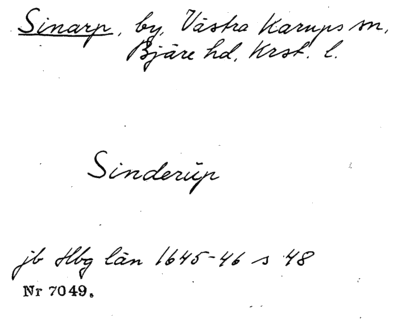 Sinarp, by, Västra Karups sn,
Bjäre hd, Krst. l.
Sinderup
jb Hbg län 1645-46 s 48
Nr 7049.